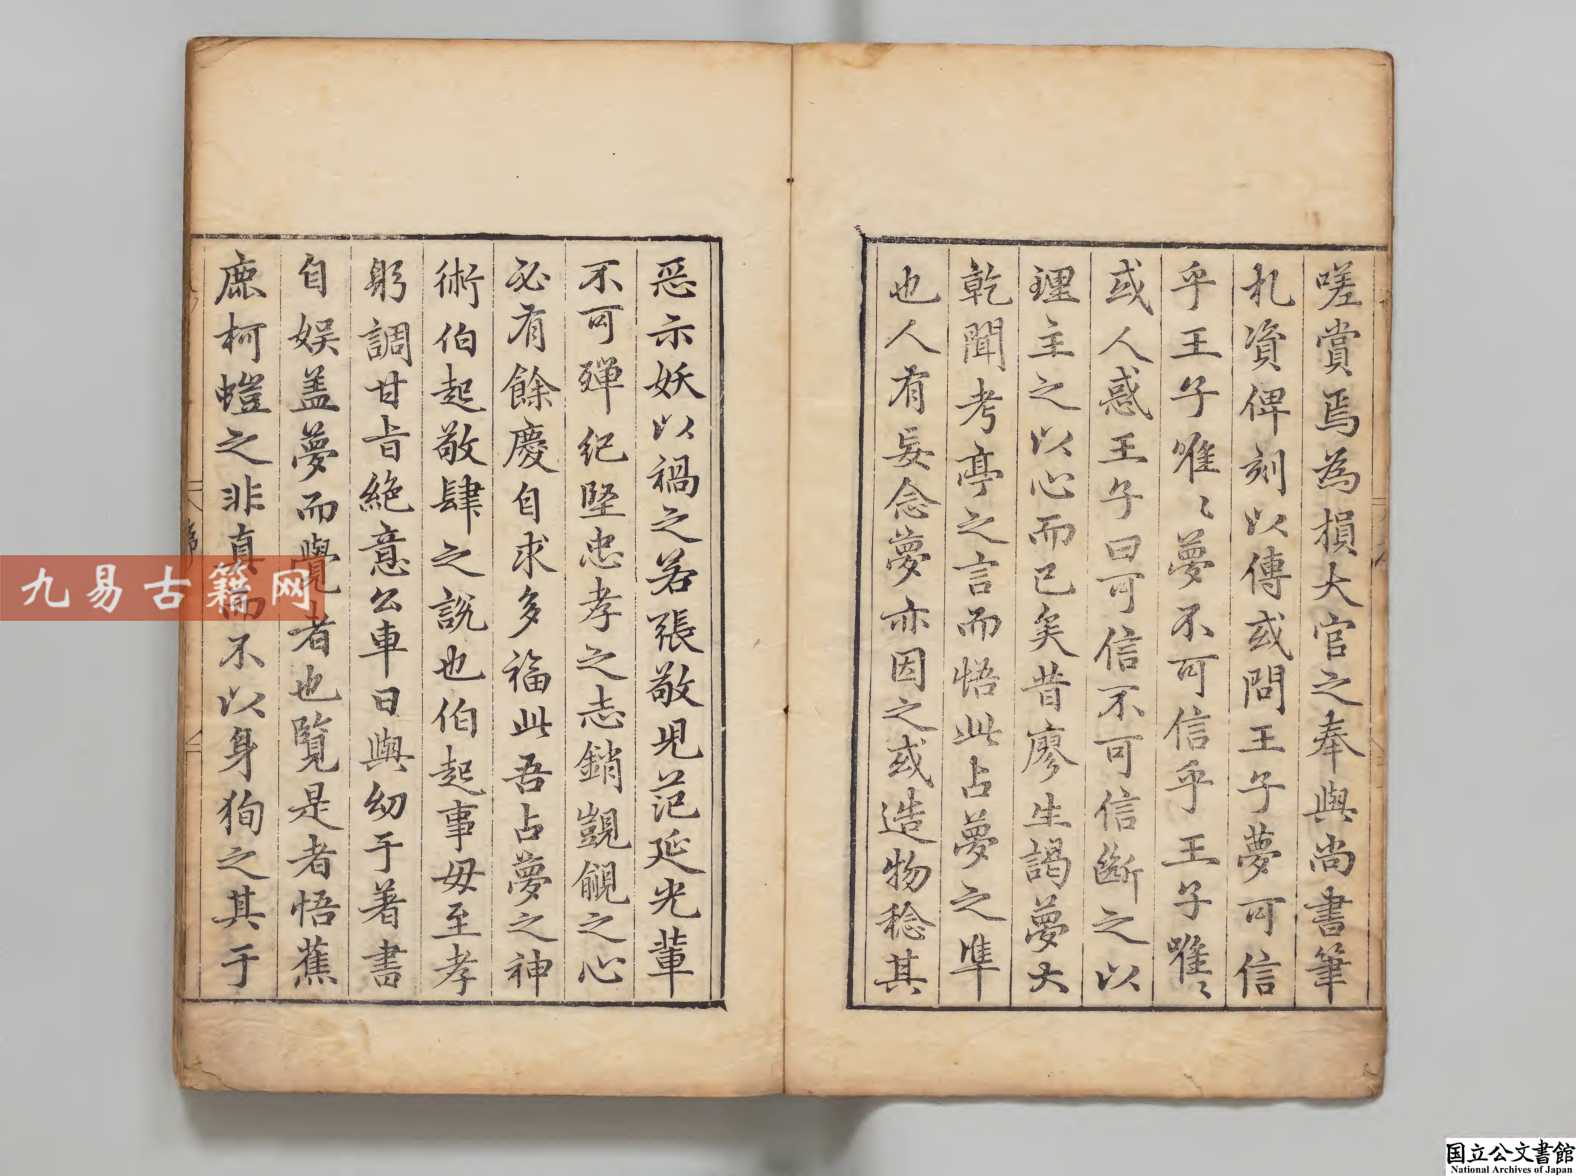 嗟賞焉為損大官之奉與尚書筆
札資俾刻以傳或問王子夢可信
乎王子唯〻夢不可信乎王子唯〻
或人惑王子曰可信不可信斷之以
理主之以心而已矣昔廖生謁夢大
乾聞考亭之言而悟此占夢之準
也人有妄念夢亦因之或造物稔其
惡示妖以禍之若張敬児范延光輩
不可殫紀堅忠孝之志銷覬覦之心
必有餘慶自求多福此吾占夢之神
術伯起敬肆之說也伯起事毋至孝
躬調甘旨絶意公車日與幼于著書
自娛盖夢而覺者也覽是者悟蕉
鹿柯螘之非真而不以身狥之其于
九易古籍网
国立公文書館
National Archives of Japan